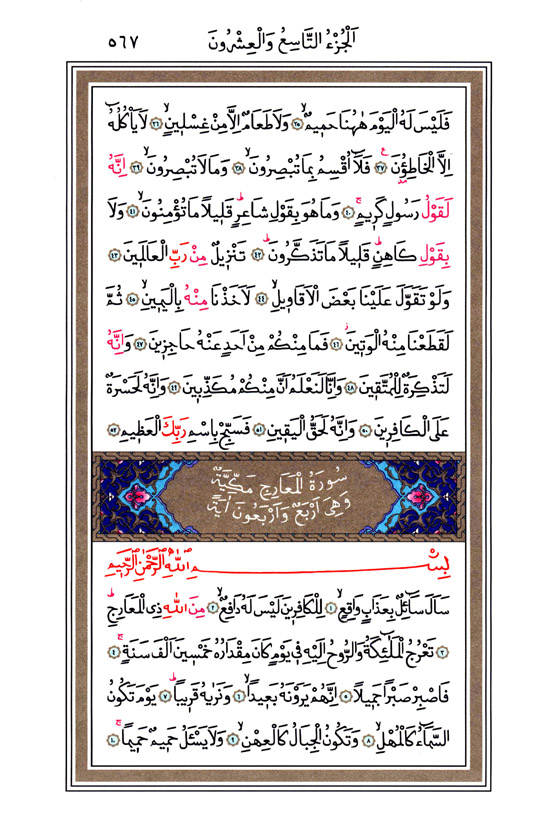 اَلْجُزْءُ التَّاسِعُ وَالْعِشْرُونَ ٥٦٧
فَلَيْسَ لَهُ الْيَوْمَ هٰهُنَا حَمِيمٌۙ ﴿٣٥﴾ وَلَا طَعَامٌ اِلَّا مِنْ غِسْلِينٍۙ ﴿٣٦﴾ لَا يَأْكُلُهُٓ
اِلَّا الْخَاطِؤُ۫نَ۟ ﴿٣٧﴾ فَلَٓا اُقْسِمُ بِمَا تُبْصِرُونَۙ ﴿٣٨﴾ وَمَا لَا تُبْصِرُونَۙ ﴿٣٩﴾ اِنَّهُ
لَقَوْلُ رَسُولٍ كَرِيمٍۚ ﴿٤٠﴾ وَمَا هُوَ بِقَوْلِ شَاعِرٍۜ قَلِيلًا مَا تُؤْمِنُونَۙ ﴿٤١﴾ وَلَا
بِقَوْلِ كَاهِنٍۜ قَلِيلًا مَا تَذَكَّرُونَۜ ﴿٤٢﴾ تَنْزِيلٌ مِنْ رَبِّ الْعَالَمِينَ ﴿٤٣﴾
وَلَوْ تَقَوَّلَ عَلَيْنَا بَعْضَ الْاَقَاوِيلِۙ ﴿٤٤﴾ لَاَخَذْنَا مِنْهُ بِالْيَمِينِۙ ﴿٤٥﴾ ثُمَّ
لَقَطَعْنَا مِنْهُ الْوَتِينَۘ ﴿٤٦﴾ فَمَا مِنْكُمْ مِنْ اَحَدٍ عَنْهُ حَاجِزِينَ ﴿٤٧﴾ وَاِنَّهُ
لَتَذْكِرَةٌ لِلْمُتَّقِينَ ﴿٤٨﴾ وَاِنَّا لَنَعْلَمُ اَنَّ مِنْكُمْ مُكَذِّبِينَ ﴿٤٩﴾ وَاِنَّهُ لَحَسْرَةٌ
عَلَى الْكَافِرِينَ ﴿٥٠﴾ وَاِنَّهُ لَحَقُّ الْيَقِينِ ﴿٥١﴾ فَسَبِّحْ بِاسْمِ رَبِّكَ الْعَظِيمِ ﴿٥٢﴾
سُورَةُ الْمَعَارِجِ مَكِّيَّةٌ
وَهِيَ اَرْبَعٌ وَاَرْبَعُونَ اٰيَةً
بِسْمِ اللّٰهِ الرَّحْمٰنِ الرَّحِيمِ
سَاَلَ سَٓائِلٌ بِعَذَابٍ وَاقِعٍۙ ﴿١﴾ لِلْكَافِرِينَ لَيْسَ لَهُ دَافِعٌۙ ﴿٢﴾ مِنَ اللّٰهِ ذِي الْمَعَارِجِۜ
﴿٣﴾ تَعْرُجُ الْمَلٰٓئِكَةُ وَالرُّوحُ اِلَيْهِ فِي يَوْمٍ كَانَ مِقْدَارُهُ خَمْسِينَ اَلْفَ سَنَةٍۚ ﴿٤﴾
فَاصْبِرْ صَبْرًا جَمِيلًا ﴿٥﴾ اِنَّهُمْ يَرَوْنَهُ بَعِيدًاۙ ﴿٦﴾ وَنَرٰيهُ قَرِيبًاۜ ﴿٧﴾ يَوْمَ تَكُونُ
السَّمَٓاءُ كَالْمُهْلِۙ ﴿٨﴾ وَتَكُونُ الْجِبَالُ كَالْعِهْنِۙ ﴿٩﴾ وَلَا يَسْـَٔلُ حَمِيمٌ حَمِيمًاۚ ﴿١٠﴾